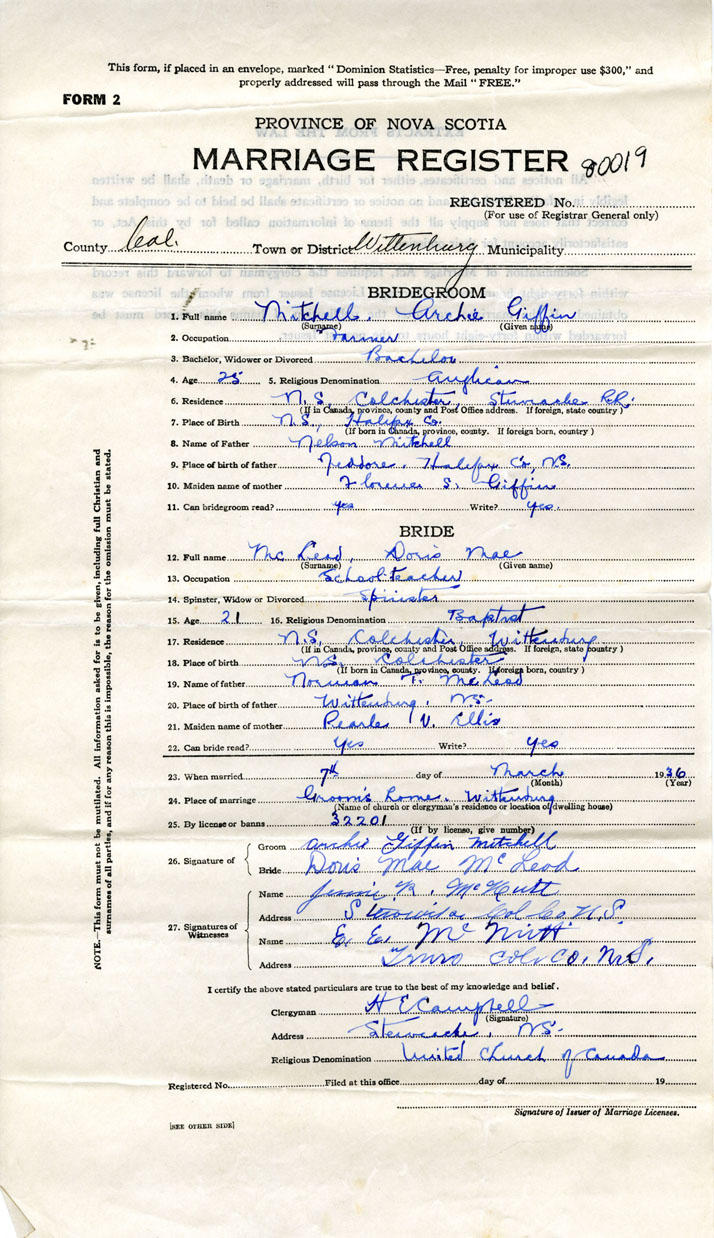 This form, if placed in an envelope, marked "Dominion Statistics—Free, penalty for improper use $300," and
properly addressed will pass through the Mail "FREE."
FORM 2
PROVINCE OF NOVA SCOTIA
MARRIAGE REGISTER 80019
REGISTERED No.
(For use of Registrar General only)
County Col. Town or District Wittenburg Municipality
BRIDEGROOM
1. Full name Mitchell, Archie Giffin
(Surname) (Given name)
2. Occupation Farmer
3. Bachelor, Widower or Divorced Bachelor
4. Age 25 5. Religious Denomination Anglican
6. Residence N.S. Colchester, Stewiacke RR.
(If in Canada, province, county and Post Office address. If foreign, state country)
7. Place of Birth N.S., Halifax Co.
(If born in Canada, province, county. If foreign born, country)
8. Name of Father Nelson Mitchell
9. Place of birth of father Jeddore, Halifax Co, N.S.
10. Maiden name of mother Florence S. Giffin
11. Can bridegroom read? yes Write? yes.
BRIDE
12. Full name Mc Leod, Doris Mae
(Surname) (Given name)
13. Occupation School-teacher
14. Spinster, Widow or Divorced Spinister
15. Age 21 16. Religious Denomination Baptist
17. Residence N.S. Colchester, Wittenburg
(If in Canada, province, county and Post Office address. If foreign, state country)
18. Place of birth N.S. Colchester
(If born in Canada, province, county. If foreign born, country)
19. Name of father Norman F. McLeod
20. Place of birth of father Wittenburg, N.S.
21. Maiden name of mother Pearle V. Ellis
22. Can bride read? Yes Write? yes
23. When married 7th day of March 1936
(Month) (Year)
24. Place of marriage Groom's home, Wittenburg
(Name of church or clergyman's residence or location of dwelling house)
25. By license or banns 32201
(If by license, give number)
26. Signature of
Groom Archie Giffin Mitchell
Bride Doris Mae McLeod
27. Signatures of Witnesses
Name Jennie R. McNutt
Address Stewiacke Col Co N.S.
Name E. E. McNutt
Address Truro Col. Co. N.S.
I certify the above stated particulars are true to the best of my knowledge and belief.
Clergyman H E Campbell
(Signature)
Address Stewiacke, N.S.
Religious Denomination United Church of Canada
Registered No. Filed at this office day of 19
Signature of Issuer of Marriage Licenses.
[SEE OTHER SIDE]
NOTE.—This form must not be mutilated. All information asked for is to be given, including full Christian and
surnames of all parties, and if for any reason this is impossible, the reason for the omission must be stated.